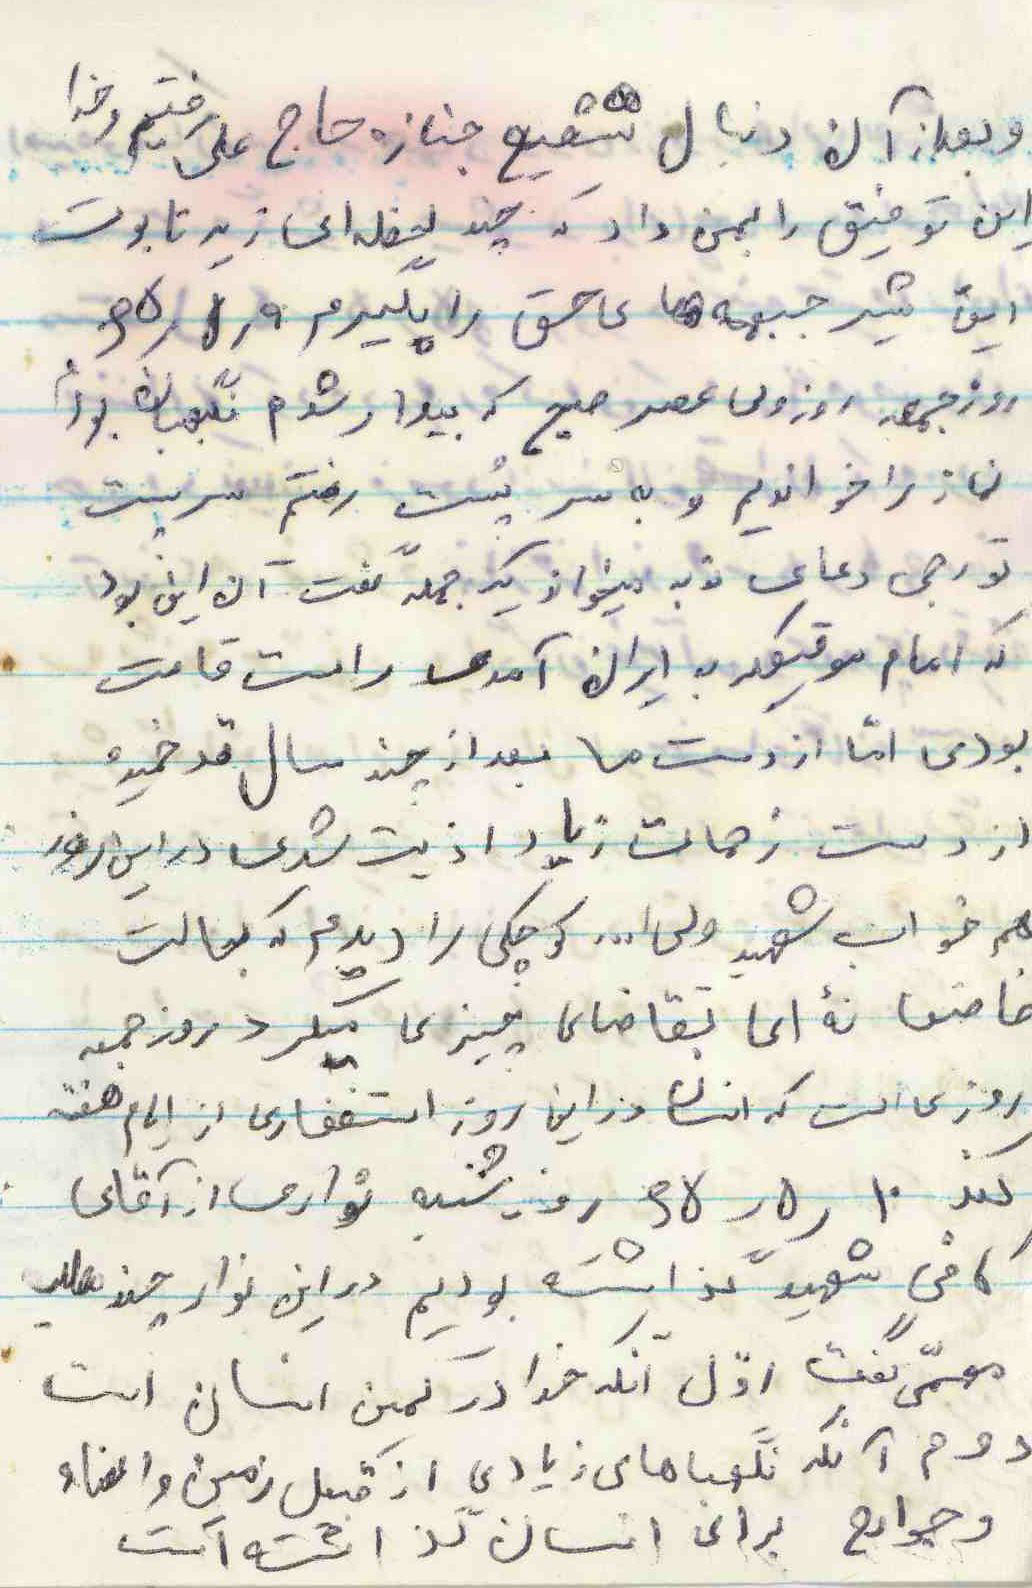 و بعد از آن دنبال تشیع جنازه حاج علی رفتیم و خدا
این توفیق را بمن داد که چند لحظه‌ای زیر تابوت
این شیر جبهه‌ها عاشق را بگیرم ۹ ر ۵ ر ۶۵
روز جمعه روز ولی عصر صبح که بیدار شدم نگهبان بودم
نماز را خواندیم و به سر پست رفتم سر پست
تورجی دعای ندبه میخواند یک جمله گفت آن این بود
که امام موقعیکه به ایران آمدی راست قامت
بودی امّا از دست ما بعد از چند سال قد خمیده
از دست زحمات زیاد اذیت شدی در این روز
هم خواب شهید ولی ا... کوچکی را دیدم که بحالت
خاضعانهٔ ای تقاضای چیزی میکرد روز جمعه
روزی است که انسان در این روز استغفاری از ایام هفته
کند ۱۰ ر ۵ ر ۶۵ روز شنبه نواری از آقای
کافی شهید گذاشته بودیم در این نوار چند مطلب
مهمّی گفت اوّل آنکه خدا در کمین انسان است
دوم آنکه نگهبانهای زیادی از قبیل زمین و اعضاء
و جوارح برای انسان گذاشته است